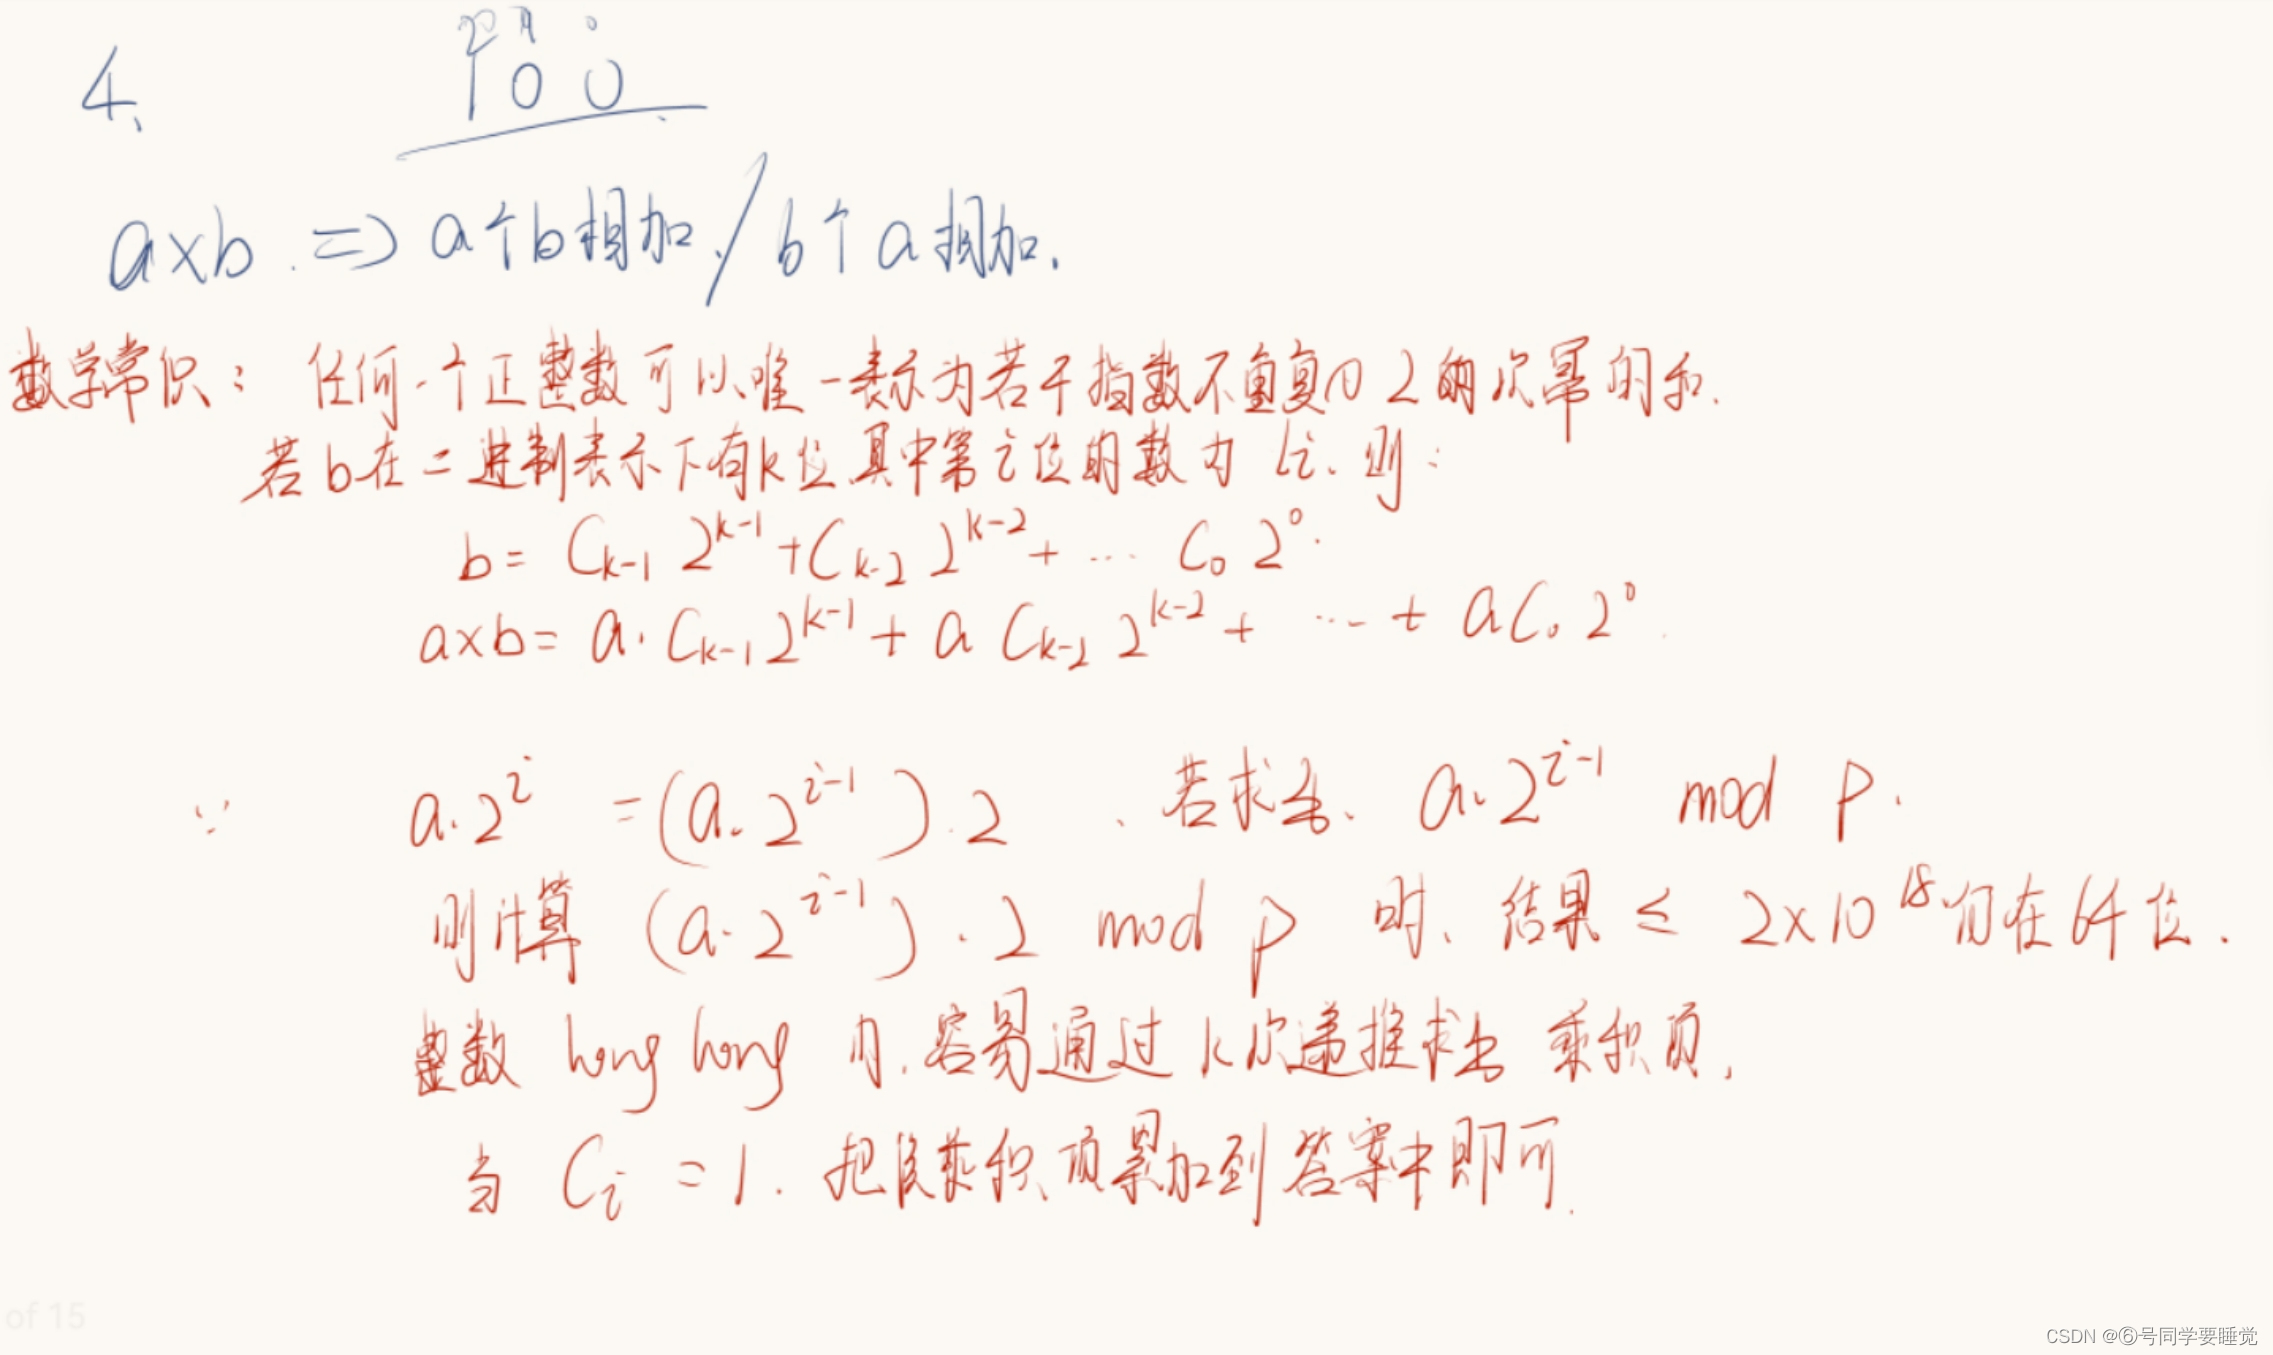 2² 2¹ 2⁰
4、 1 0 0
a×b. ⇒ a个b相加./b个a相加.
数学常识: 任何一个正整数可以唯一表示为若干指数不重复的2的次幂的和.
若b在二进制表示下有k位,其中第i位的数为Ci、则:
b= Cₖ₋₁ 2ᵏ⁻¹+Cₖ₋₂ 2ᵏ⁻²+ ... C₀ 2⁰.
a×b= a·Cₖ₋₁ 2ᵏ⁻¹+ a Cₖ₋₂ 2ᵏ⁻²+ ... + a C₀ 2⁰.
∵ a·2ⁱ =(a·2ⁱ⁻¹)·2 、若求出、a·2ⁱ⁻¹ mod p.
则计算 (a·2ⁱ⁻¹)·2 mod p 时、结果 ≤ 2×10¹⁸仍在64位.
整数 long long 内.容易通过k次递推求出 乘积项,
当 Cᵢ =1. 把该乘积项累加到答案中即可.
of 15
CSDN @⑥号同学要睡觉